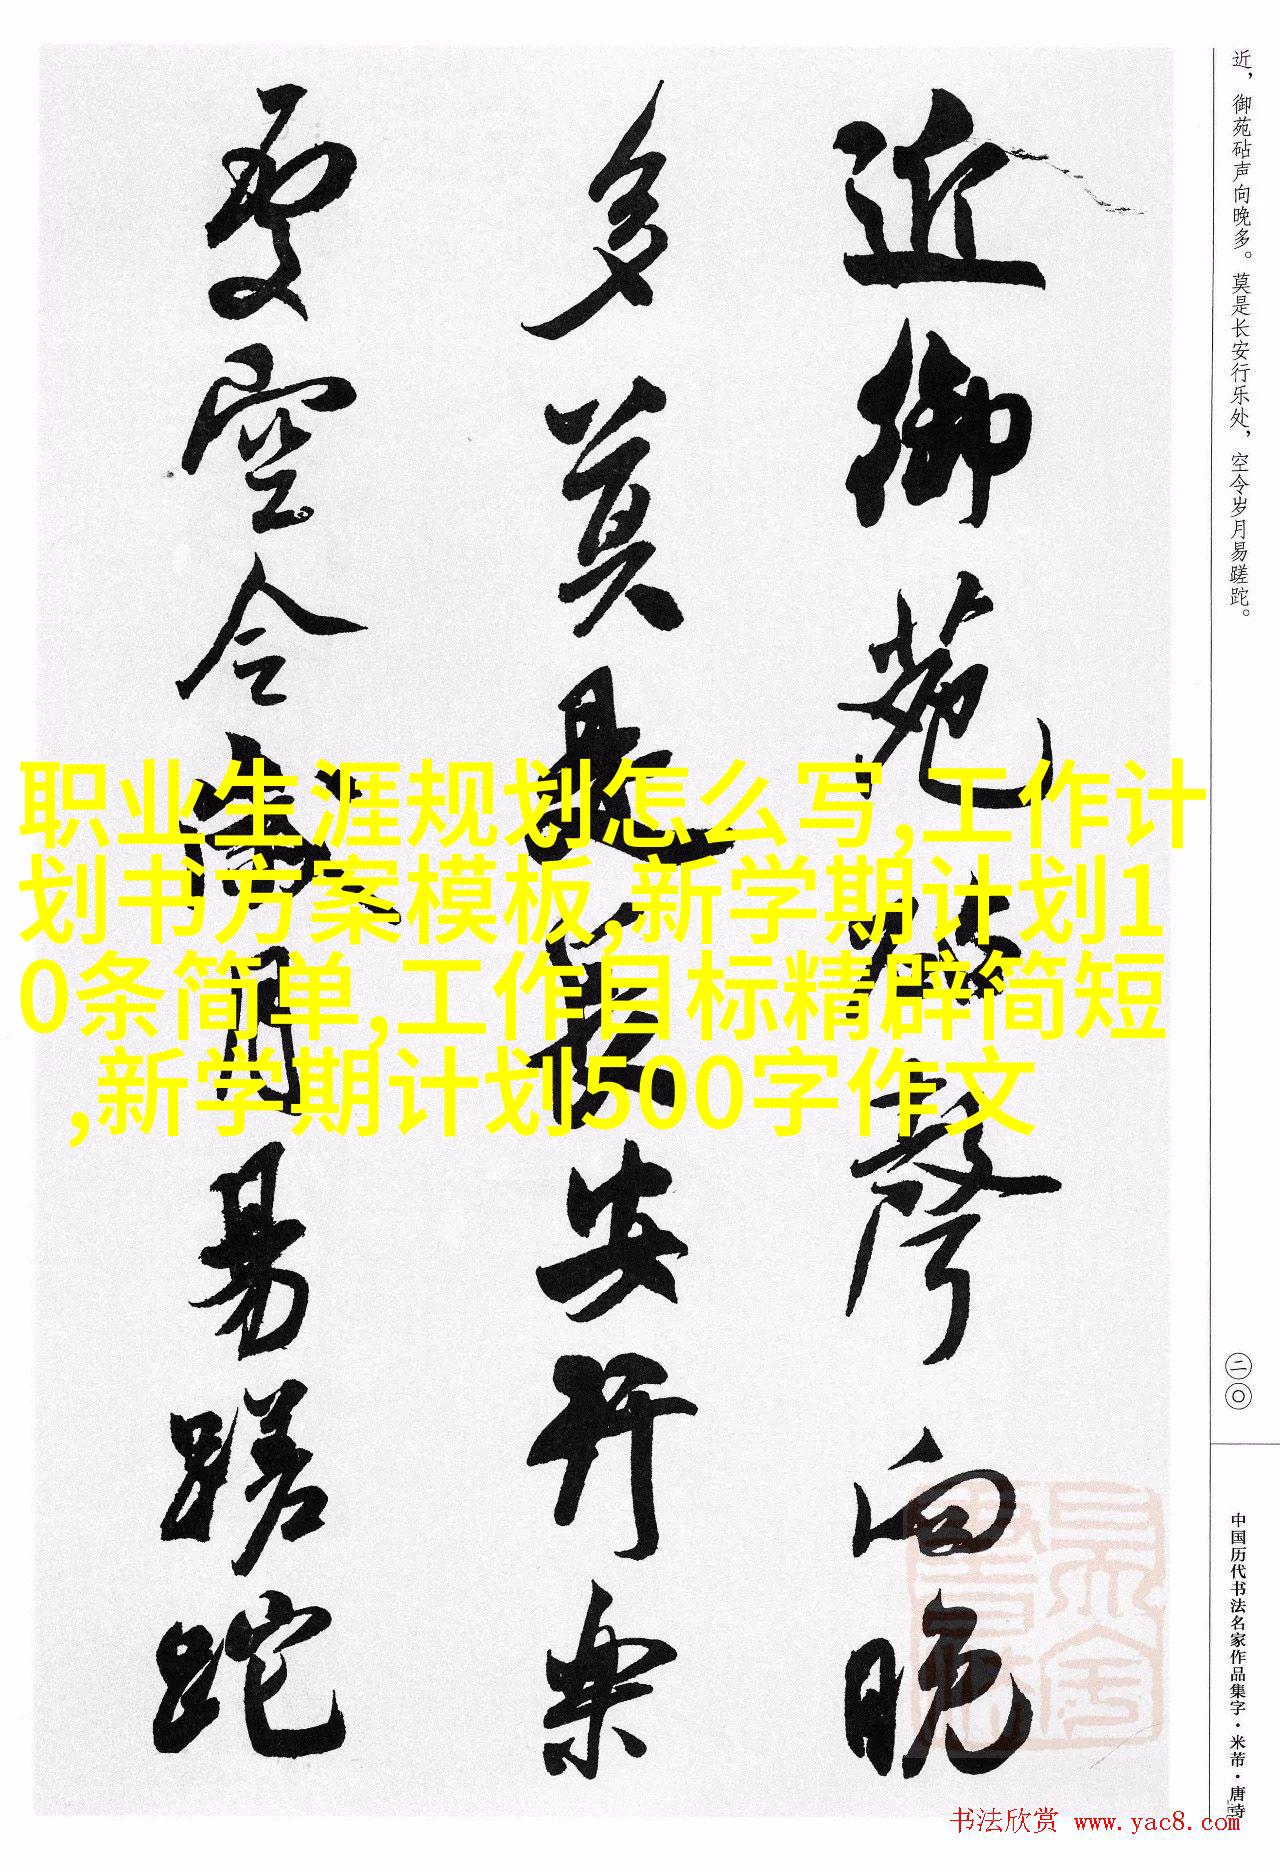 近，御苑砧声向晚多。莫是长安行乐处，空令岁月易蹉跎。
近御苑砧聲向晚
多莫是長安行樂
處空令歲月易蹉跎
职业生涯规划怎么写,工作计
划书方案模板,新学期计划1
0条简单,工作目标精辟简短
,新学期计划500字作文
二〇
中国历代书法名家作品集字·米芾·唐诗
书法欣赏 www.yac8.com